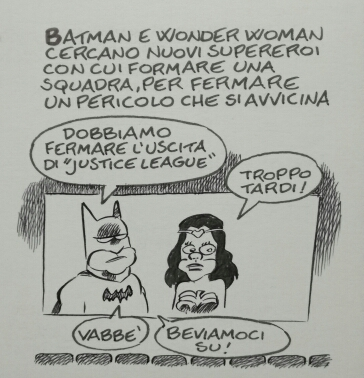 BATMAN E WONDER WOMAN
CERCANO NUOVI SUPEREROI
CON CUI FORMARE UNA
SQUADRA, PER FERMARE
UN PERICOLO CHE SI AVVICINA
DOBBIAMO
FERMARE L'USCITA
DI "JUSTICE LEAGUE"
TROPPO
TARDI!
VABBE'
BEVIAMOCI
SU!